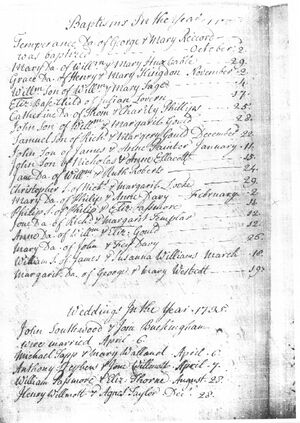 Baptisms In the Year
Temperance Da. of George & Mary Reccord
was baptized October 2
Mary Da. of Willm & Mary Huxtable 29
Grace Da. of Henry & Mary Hingdon November 2
Willm Son of Willm & Mary 14
Eliz. Base Child of Lovern 17
Catherine Da. of Thom & Charity Phillips 25
John Son of Willm & Margaret Goud 28
Samuel Son of Richd & Margery Gaud December 22
John Son of James & Anne January 11
John Son of Nicholas & Anne Ellacott 13
Jane Da. of Willm & Ruth Roberts 24
Christopher S. of & Margaret Locke 29
Mary Da. of Philip & Anne Davy February 2
Philip S. of Philip & Eliz. Passmore 14
Joan Da. of Richd & Margaret Templar 12
Anne Da. of Willm & Eliz. Goud 12
Mary Da. of John & Davy 26
William S. of James & Susanna Williams March 10
Margaret Da. of George & Mary Westcott 19
Weddings In the Year 1725
John Southwood & Joan Buckingham
were married April 6
Michael Tapp & Mary Walland April 6
Anthony Stephens & Jone Willmott April 7
William Passmore & Eliz. Thorne August 28
Henry Willmott & Agnes Taylor Decr 28